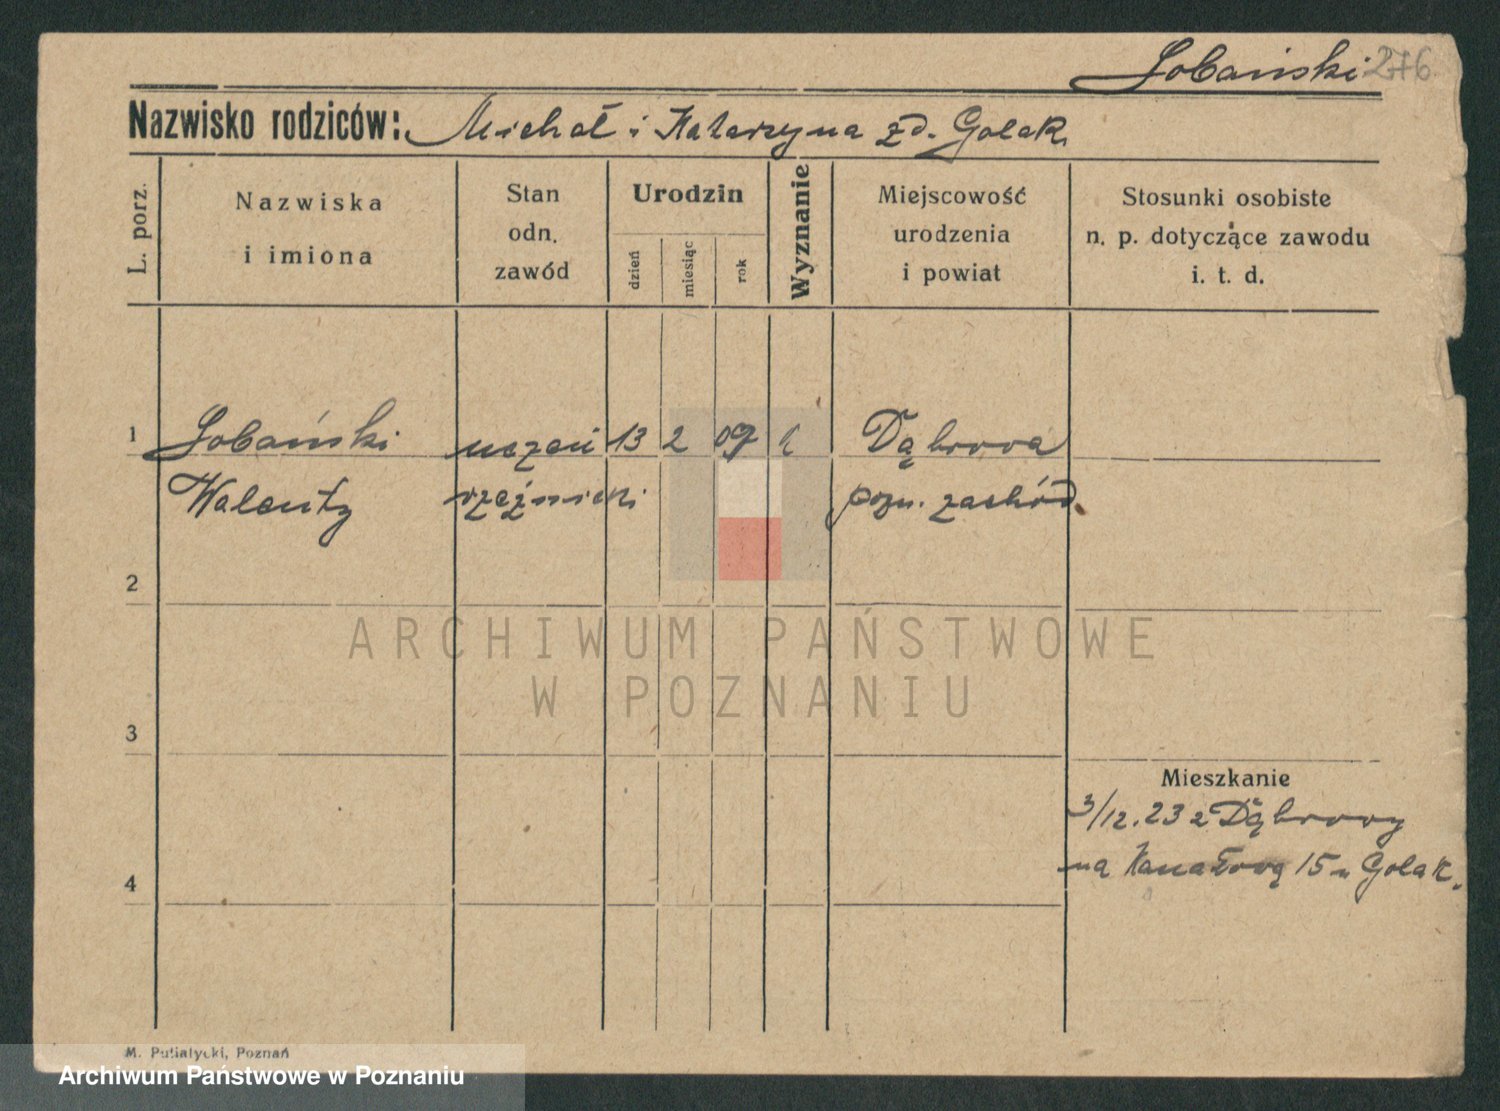 Łobański 276
Nazwisko rodziców: Michał i Katarzyna zd. Golak
L. porz.
Nazwiska
i imiona
Stan
odn.
zawód
Urodzin
dzień
miesiąc
rok
Wyznanie
Miejscowość
urodzenia
i powiat
Stosunki osobiste
n. p. dotyczące zawodu
i. t. d.
1 Łobański uczeń 13 2 09 Dąbrowa
Walenty rzeźnicki pozn. zachód.
2
3
Mieszkanie
3/12.23 z Dąbrowy
4 na Kanałową 15 u Golak.
ARCHIWUM PAŃSTWOWE
W POZNANIU
M. Putiatycki, Poznań
Archiwum Państwowe w Poznaniu